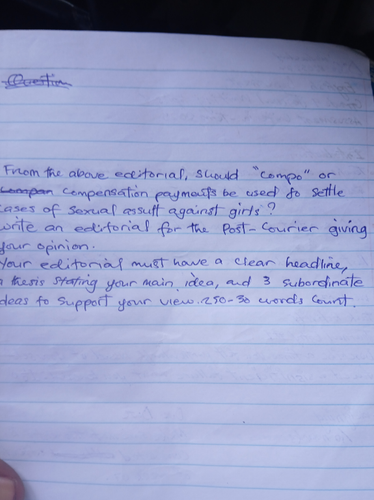 Question
From the above editorial, should "compo" or
compan compensation payments be used to settle
cases of sexual assult against girls?
write an editorial for the Post-Courier giving
your opinion.
Your editorial must have a clear headline,
a thesis stating your main idea, and 3 subordinate
ideas to support your view. 250-30 words count.